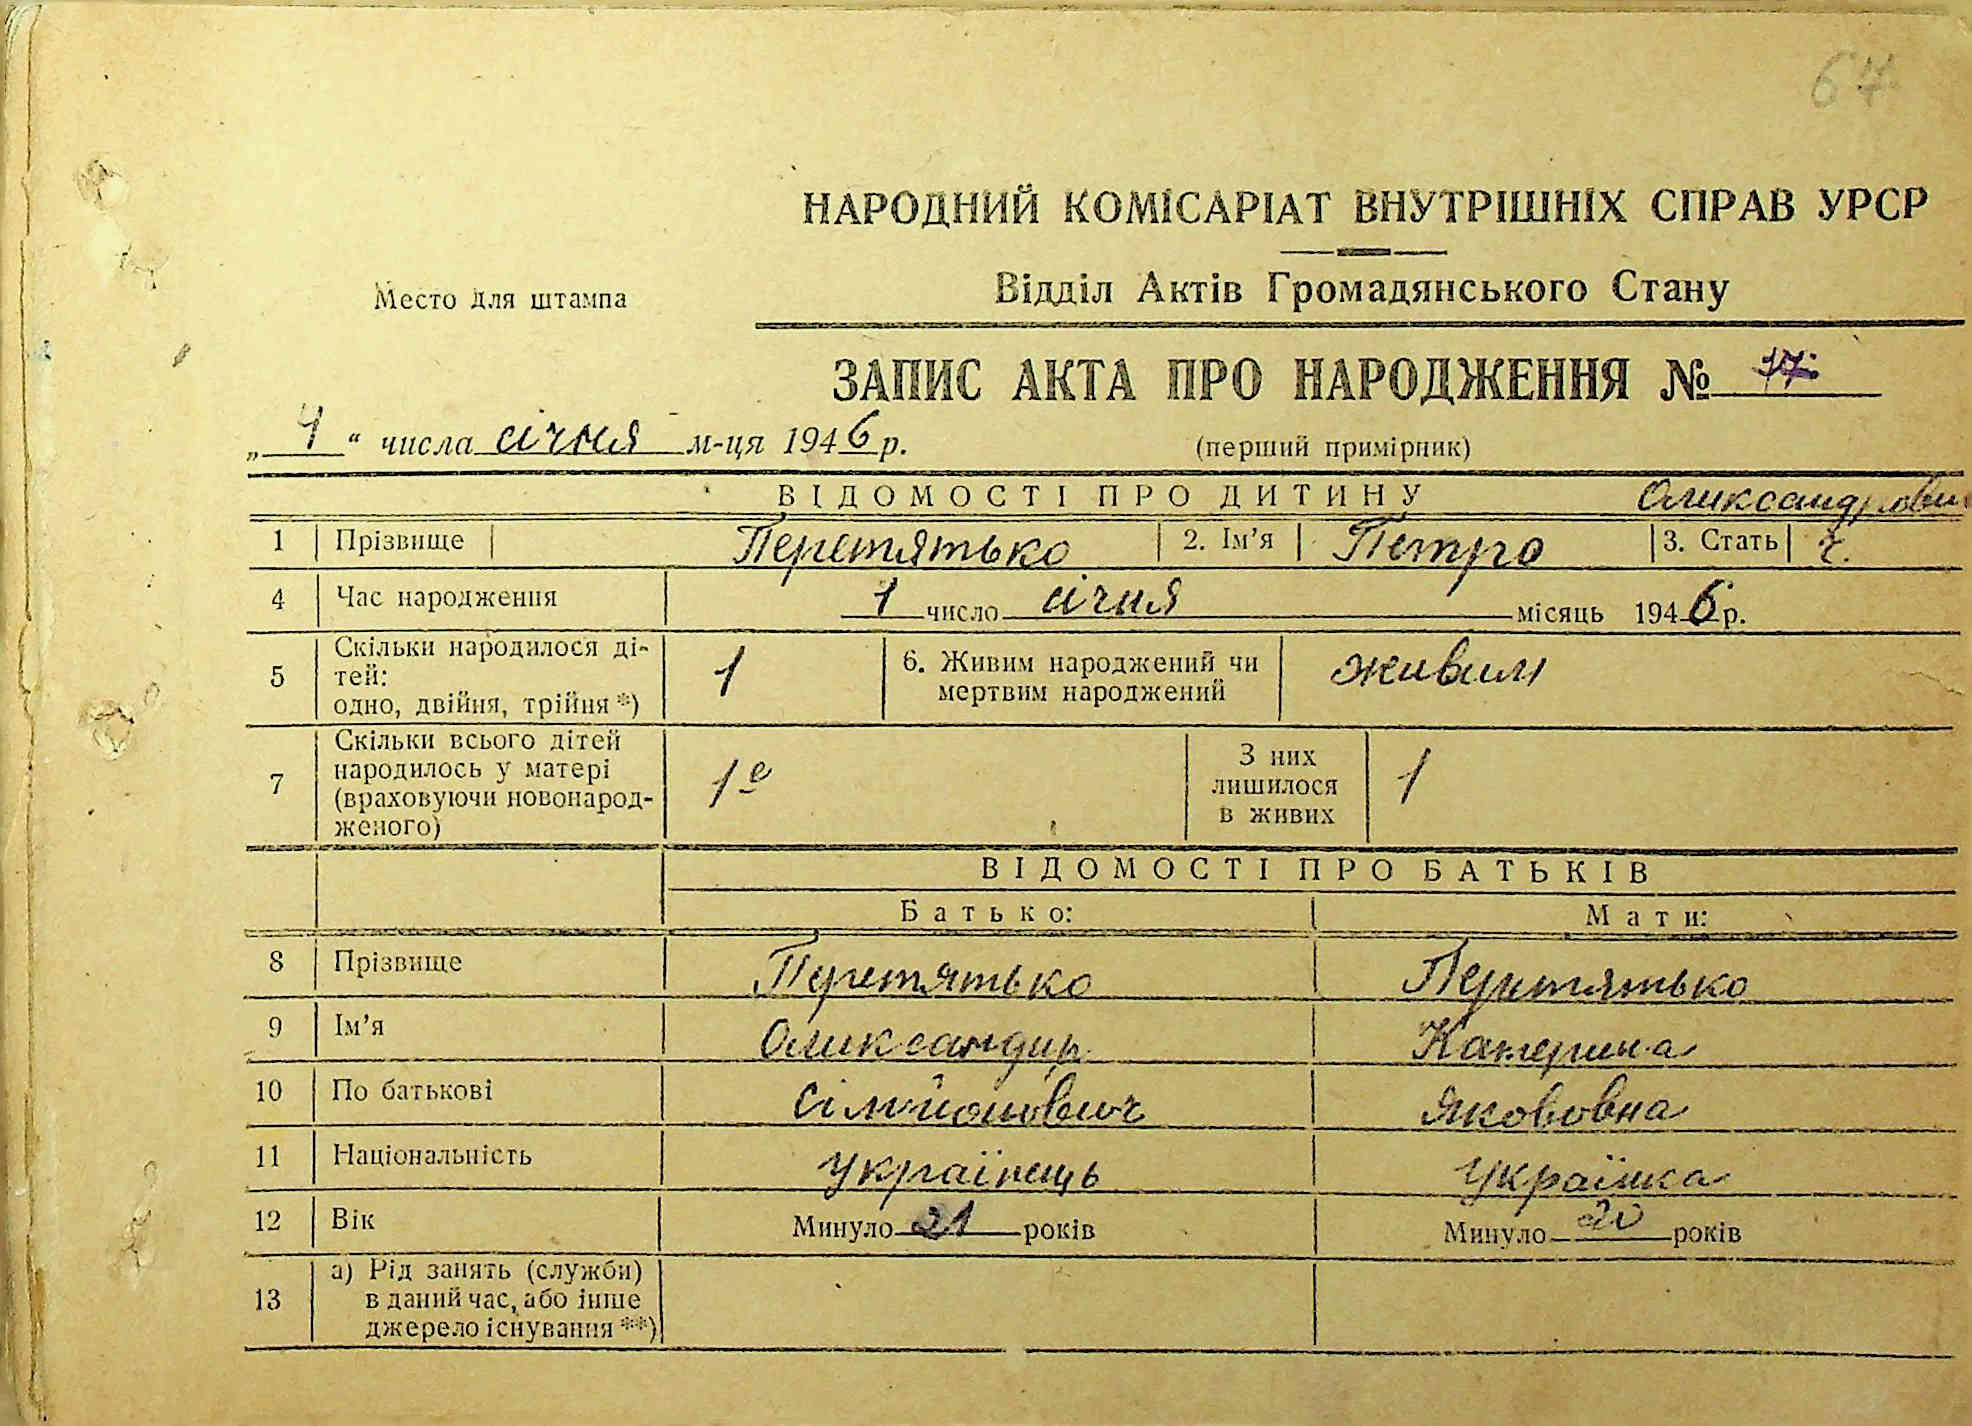 67
НАРОДНИЙ КОМІСАРІАТ ВНУТРІШНІХ СПРАВ УРСР
Место для штампа
Відділ Актів Громадянського Стану
ЗАПИС АКТА ПРО НАРОДЖЕННЯ № 17.
„4“ числа січня м-ця 1946 р.
(перший примірник)
ВІДОМОСТІ ПРО ДИТИНУ Олександрович
1 Прізвище Перетятько 2. Ім’я Петро 3. Стать ч.
4 Час народження 1 число січня місяць 1946 р.
5 Скільки народилося ді-
тей:
одно, двійня, трійня *) 1 6. Живим народжений чи
мертвим народжений живим
7 Скільки всього дітей
народилось у матері
(враховуючи новонарод-
женого) 1е З них
лишилося
в живих 1
ВІДОМОСТІ ПРО БАТЬКІВ
Батько: Мати:
8 Прізвище Перетятько Перетятько
9 Ім’я Олександр Катерина
10 По батькові Сімйонович Якововна
11 Національність Українець Українка
12 Вік Минуло 21 років Минуло 20 років
13 а) Рід занять (служби)
в даний час, або інше
джерело існування **)